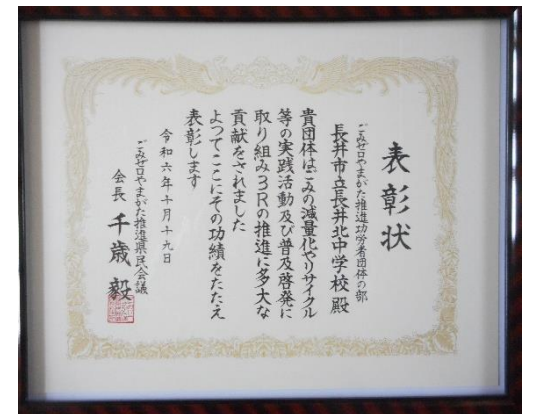 表彰状
ごみゼロやまがた推進功労者団体の部
長井市立長井北中学校 殿
貴団体はごみの減量化やリサイクル
等の実践活動及び普及啓発に
取り組み3Rの推進に多大な
貢献をされました
よつてここにその功績をたたえ
表彰します
令和六年十月十九日
ごみゼロやまがた推進県民会議
会長 千歳 毅